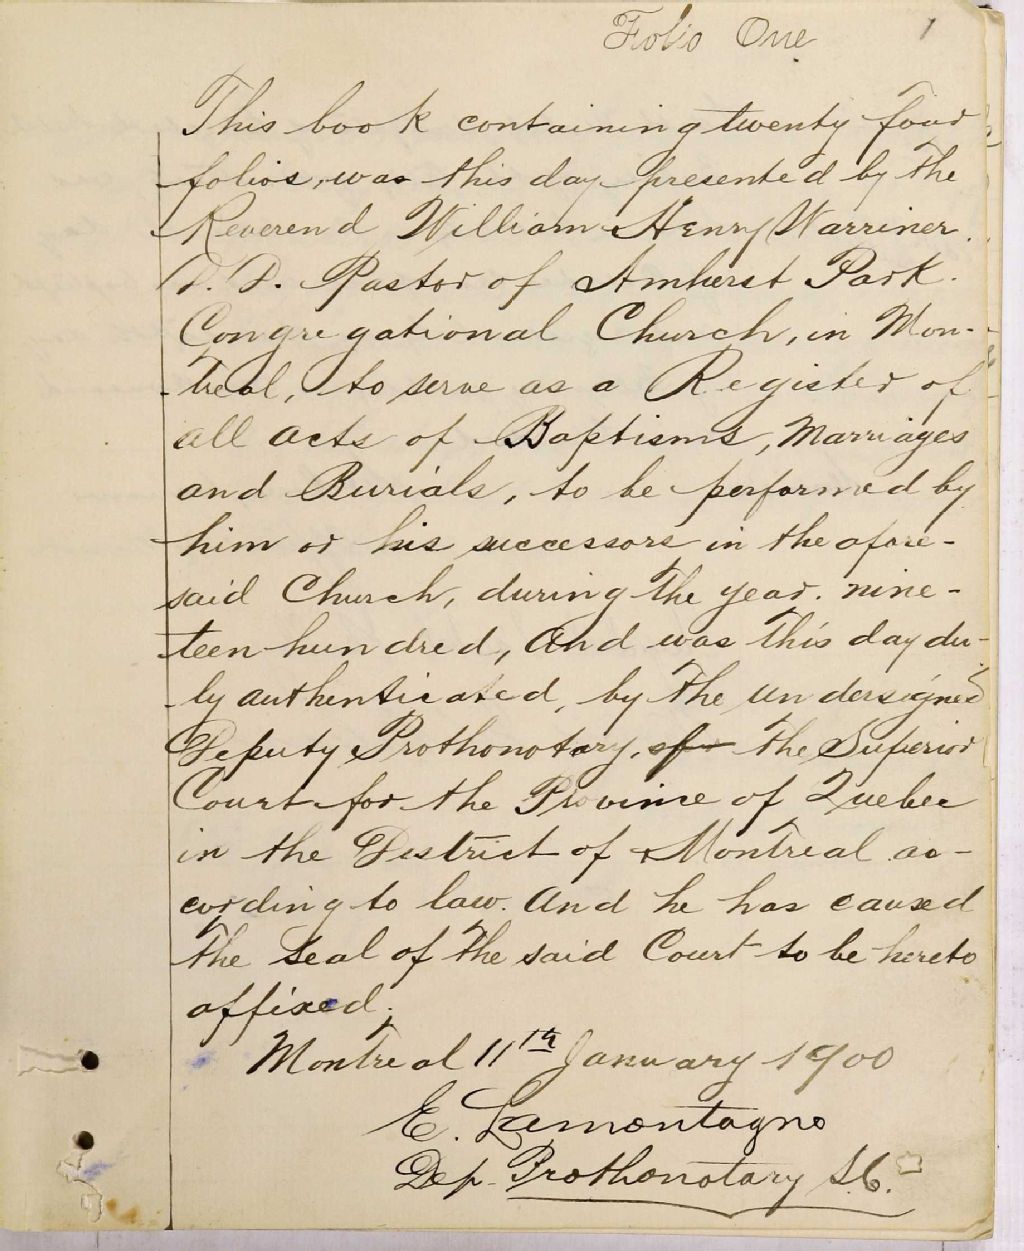 Folio One
1
This book containing twenty four
folios, was this day presented by the
Reverend William Henry Warriner.
D. D. Pastor of Amherst Park.
Congregational Church, in Mon-
treal, to serve as a Register of
all acts of Baptisms, Marriages
and Burials, to be performed by
him or his successors in the afore-
said Church, during the year. nine-
teen hundred, and was this day du-
ly authenticated, by the undersigned
Deputy Prothonotary, of the Superior
Court for the Province of Quebec
in the District of Montreal ac-
cording to law. And he has caused
the seal of the said Court to be hereto
affixed.
Montreal 11th January 1900
E. Lamontagne
Dep. Prothonotary S.C.